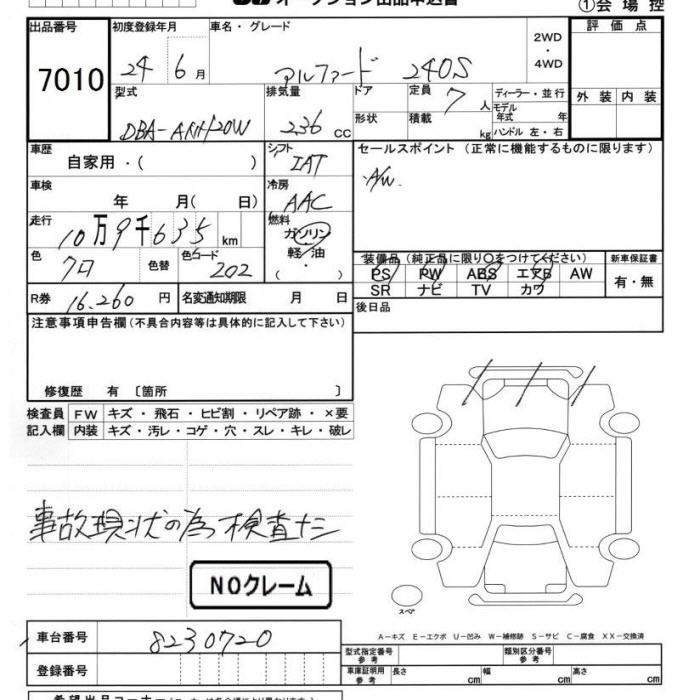 オークション出品申込書 ①会場控
出品番号 初度登録年月 車名・グレード 2WD・4WD 評価点
7010 24 6月 アルファード 240S
型式 排気量 ドア 定員 7人 ディーラー・並行 外装 内装
DBA-ANH20W 236 cc 形状 積載 kg モデル年式 年 ハンドル 左・右
車歴 自家用・( ) シフト IAT セールスポイント (正常に機能するものに限ります)
車検 年 月( 日) 冷房 AAC A/W.
走行 10万9千635 km 燃料 ガソリン 軽・油 ( ・ )
色 7ロ 色替 色コード 202 装備品(純正品に限り○をつけてください) 新車保証書
PS PW ABS エアB AW 有・無
SR ナビ TV カワ
R券 16.260円 名変通知期限 月 日 後日品
注意事項申告欄(不具合内容等は具体的に記入して下さい)
修復歴 有 〔箇所 〕
検査員 FW キズ・飛石・ヒビ割・リペア跡・×要
記入欄 内装 キズ・汚レ・コゲ・穴・スレ・キレ・破レ
事故現状の為検査ナシ
NOクレーム
スペア
A-キズ E-エクボ U-凹み W-補修跡 S-サビ C-腐食 XX-交換済
車台番号 8230720 型式指定番号 参考 類別区分番号 参考
登録番号 車庫証明用 参考 長さ cm 幅 cm 高さ cm